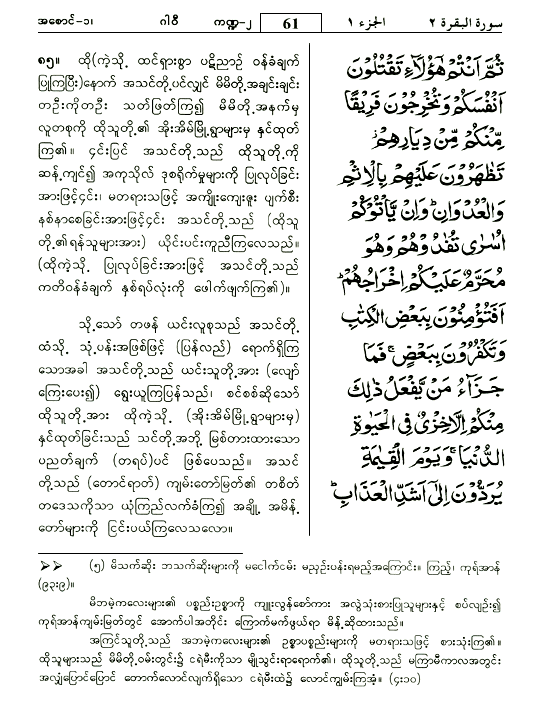 အစောင်-၁၊ ဂါဝီ ကဏ္ဍ-၂ 61 الجزء ١ سورة البقرة ٢
၈၅။ ထို(ကဲ့သို့ ထင်ရှားစွာ ပဋိညာဉ် ဝန်ခံချက်
ပြုကြပြီး)နောက် အသင်တို့ပင်လျှင် မိမိတို့အချင်းချင်း
တဦးကိုတဦး သတ်ဖြတ်ကြ၍ မိမိတို့အနက်မှ
လူတစုကို ထိုသူတို့၏ အိုးအိမ်မြို့ရွာများမှ နှင်ထုတ်
ကြ၏။ ၎င်းပြင် အသင်တို့သည် ထိုသူတို့ကို
ဆန့်ကျင်၍ အကုသိုလ် ဒုစရိုက်မှုများကို ပြုလုပ်ခြင်း
အားဖြင့်၎င်း၊ မတရားသဖြင့် အကျိုးကျေးဇူး ပျက်စီး
နစ်နာစေခြင်းအားဖြင့်၎င်း အသင်တို့သည် (ထိုသူ
တို့၏ရန်သူများအား) ယိုင်းပင်းကူညီကြလေသည်။
(ထိုကဲ့သို့ ပြုလုပ်ခြင်းအားဖြင့် အသင်တို့သည်
ကတိဝန်ခံချက် နှစ်ရပ်လုံးကို ဖေါက်ဖျက်ကြ၏)။
သို့သော် တဖန် ယင်းလူစုသည် အသင်တို့
ထံသို့ သုံ့ပန်းအဖြစ်ဖြင့် (ပြန်လည်) ရောက်ရှိကြ
သောအခါ အသင်တို့သည် ယင်းသူတို့အား (လျော်
ကြေးပေး၍) ရွေးယူကြပြန်သည်၊ စင်စစ်ဆိုသော်
ထိုသူတို့အား ထိုကဲ့သို့ (အိုးအိမ်မြို့ရွာများမှ)
နှင်ထုတ်ခြင်းသည် သင်တို့အဘို့ မြစ်တားထားသော
ပညတ်ချက် (တရပ်)ပင် ဖြစ်ပေသည်။ အသင်
တို့သည် (တောင်ရာတ်) ကျမ်းတော်မြတ်၏ တစိတ်
တဒေသကိုသာ ယုံကြည်လက်ခံကြ၍ အချို့ အမိန့်
တော်များကို ငြင်းပယ်ကြလေသလော။
ثُمَّ اَنْتُمْ هٰٓؤُلَآءِ تَقْتُلُوْنَ
اَنْفُسَكُمْ وَتُخْرِجُوْنَ فَرِيْقًا
مِّنْكُمْ مِّنْ دِيَارِهِمْ
تَظٰهَرُوْنَ عَلَيْهِمْ بِالْاِثْمِ
وَالْعُدْوَانِ وَاِنْ يَّاْتُوْكُمْ
اُسٰرٰى تُفٰدُوْهُمْ وَهُوَ
مُحَرَّمٌ عَلَيْكُمْ اِخْرَاجُهُمْ
اَفَتُؤْمِنُوْنَ بِبَعْضِ الْكِتٰبِ
وَتَكْفُرُوْنَ بِبَعْضٍ ۚ فَمَا
جَزَآءُ مَنْ يَّفْعَلُ ذٰلِكَ
مِنْكُمْ اِلَّا خِزْىٌ فِى الْحَيٰوةِ
الدُّنْيَا ۚ وَيَوْمَ الْقِيٰمَةِ
يُرَدُّوْنَ اِلٰٓى اَشَدِّ الْعَذَابِ
➢➢ (၅) မိသက်ဆိုး ဘသက်ဆိုးများကို မငေါက်ငမ်း မညှဉ်းပန်းရမည့်အကြောင်း။ ကြည့်၊ ကုရ်အာန်
(၉၃း၉)။
မိဘမဲ့ကလေးများ၏ ပစ္စည်းဥစ္စာကို ကျူးလွန်စော်ကား အလွဲသုံးစားပြုသူများနှင့် စပ်လျဉ်း၍
ကုရ်အာန်ကျမ်းမြတ်တွင် အောက်ပါအတိုင်း ကြောက်မက်ဖွယ်ရာ မိန့်ဆိုထားသည်။
အကြင်သူတို့သည် အဘမဲ့ကလေးများ၏ ဥစ္စာပစ္စည်းများကို မတရားသဖြင့် စားသုံးကြ၏။
ထိုသူများသည် မိမိတို့ဝမ်းတွင်း၌ ငရဲမီးကိုသာ မျိုသွင်းရာရောက်၏၊ ထိုသူတို့သည် မကြာမီကာလအတွင်း
အလျှံပြောင်ပြောင် တောက်လောင်လျက်ရှိသော ငရဲမီးထဲ၌ လောင်ကျွမ်းကြအံ့။ (၄း၁၀)